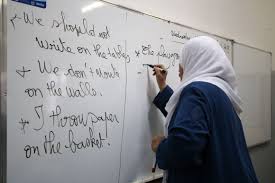 - We should not
write on the tables
* We don't
on the walls.
* I throw paper
on the basket.
* The